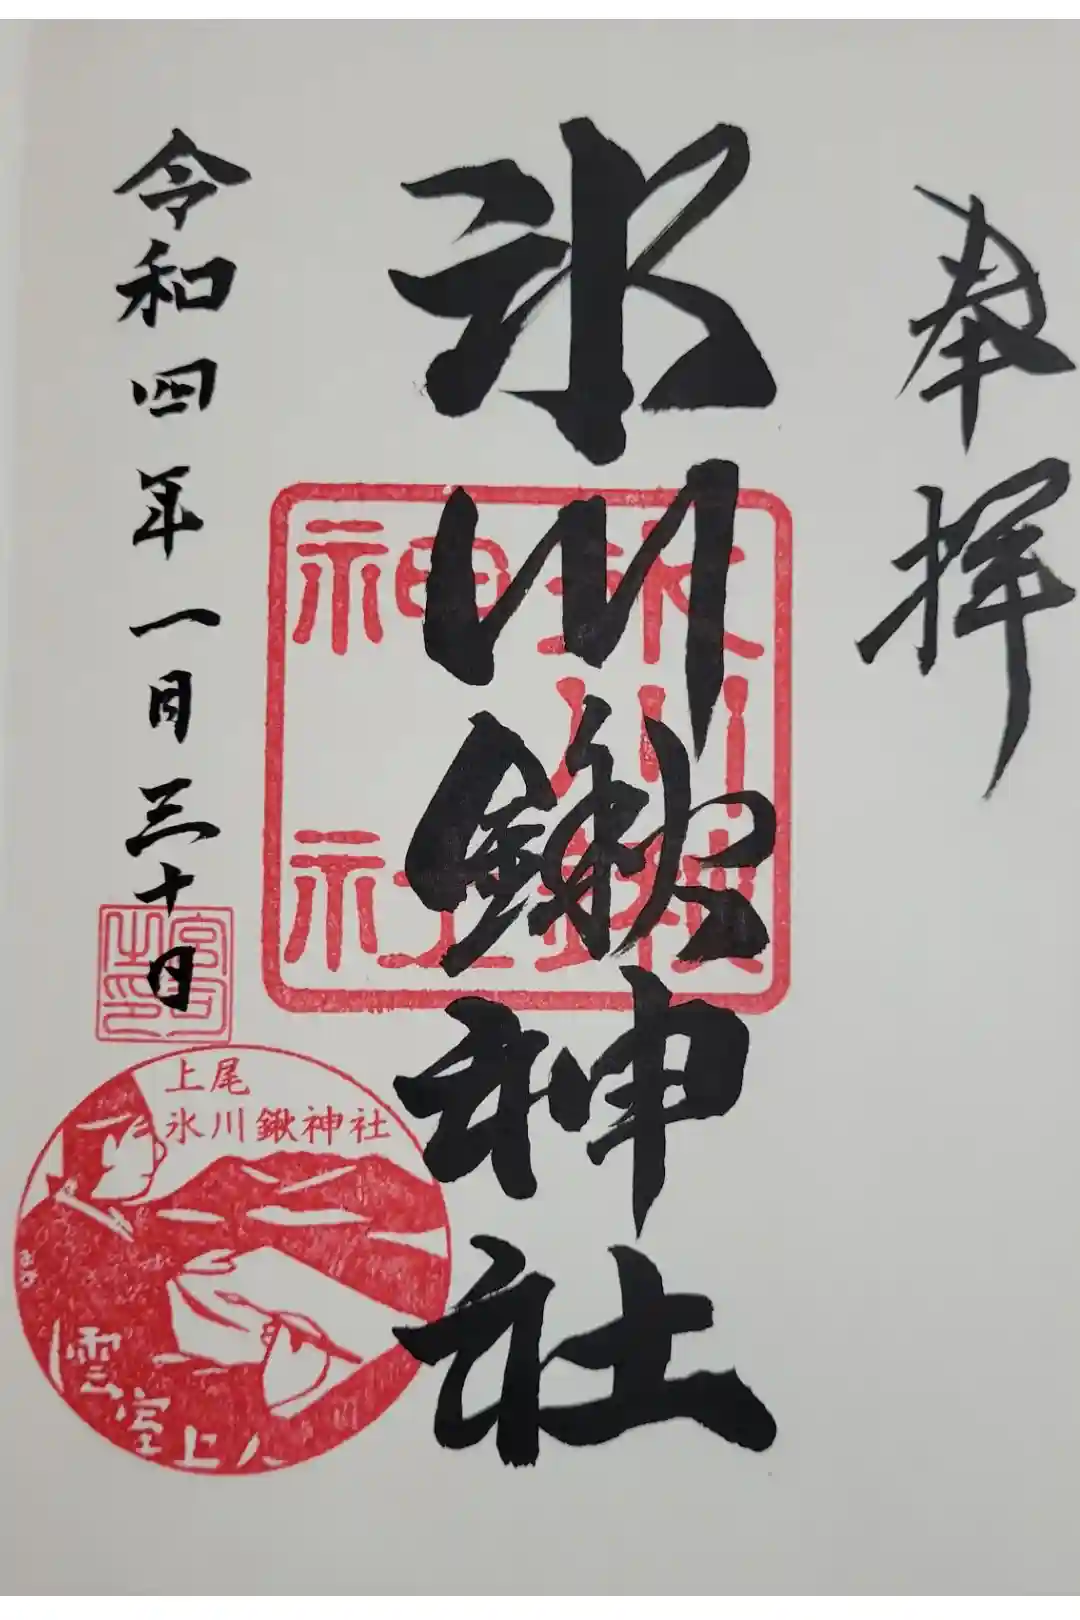 奉拝
氷川鍬神社
令和四年一月三十日
氷川鍬
神社
宮司之印
上尾
氷川鍬神社
雲室上人